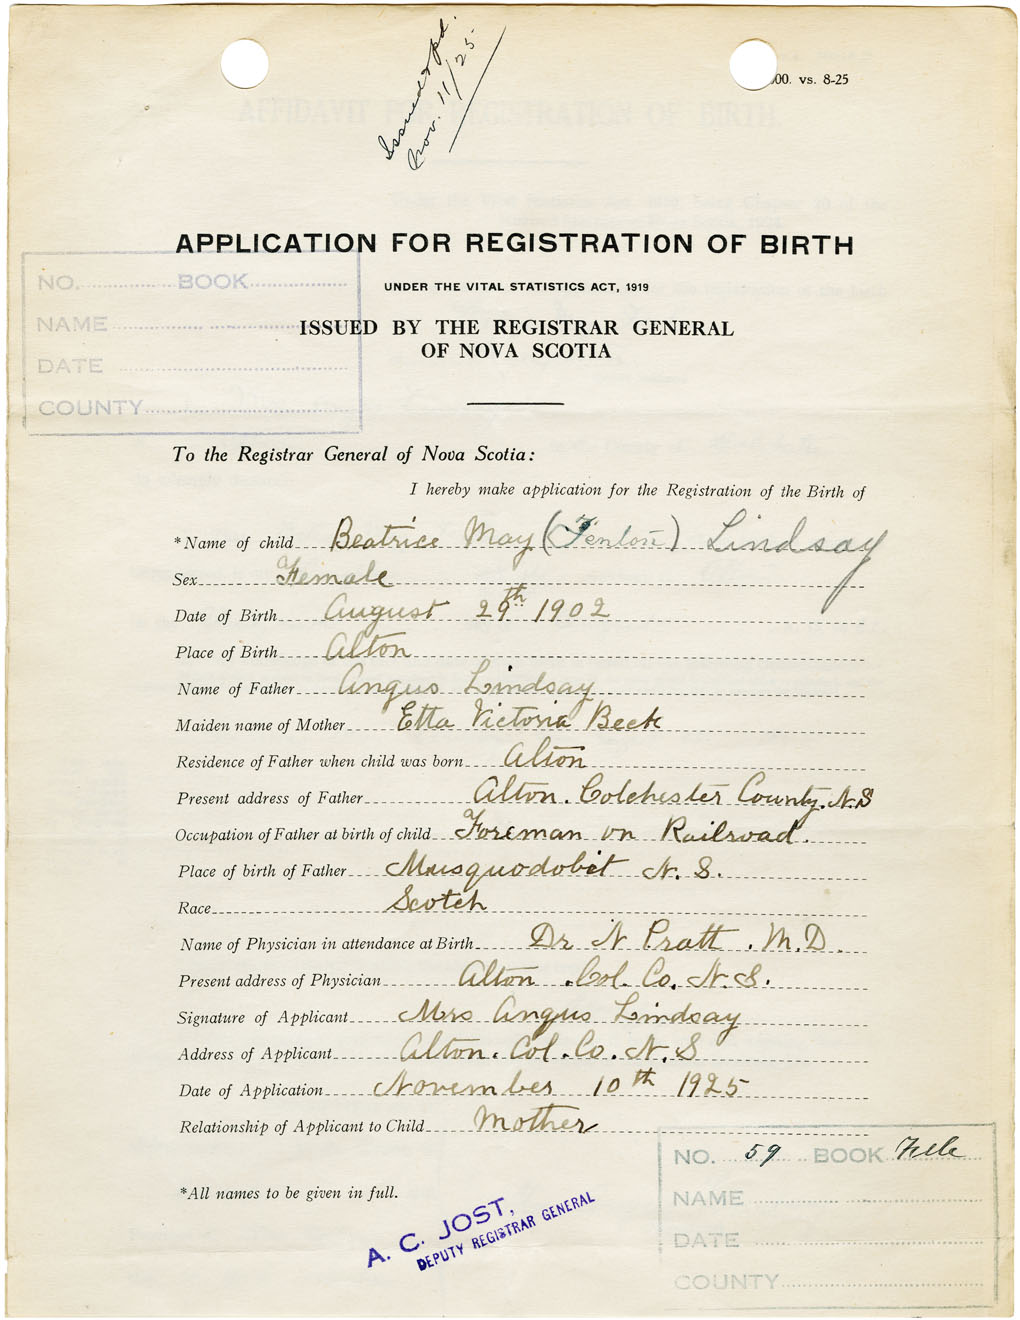 Issued & pd.
Nov. 11/25.
00. vs. 8-25
AFFIDAVIT FOR REGISTRATION OF BIRTH
APPLICATION FOR REGISTRATION OF BIRTH
UNDER THE VITAL STATISTICS ACT, 1919
ISSUED BY THE REGISTRAR GENERAL
OF NOVA SCOTIA
NO. BOOK
NAME
DATE
COUNTY
To the Registrar General of Nova Scotia:
I hereby make application for the Registration of the Birth of
*Name of child Beatrice May (Fenton) Lindsay
Sex Female
Date of Birth August 29th 1902
Place of Birth Alton
Name of Father Angus Lindsay
Maiden name of Mother Etta Victoria Beck
Residence of Father when child was born Alton
Present address of Father Alton. Colchester County. N.S
Occupation of Father at birth of child Foreman on Railroad.
Place of birth of Father Musquodobit N. S.
Race Scotch
Name of Physician in attendance at Birth Dr N Pratt. M.D.
Present address of Physician Alton. Col. Co. N.S.
Signature of Applicant Mrs Angus Lindsay
Address of Applicant Alton. Col. Co. N.S
Date of Application November 10th 1925
Relationship of Applicant to Child Mother
*All names to be given in full.
A. C. JOST,
DEPUTY REGISTRAR GENERAL
NO. 59 BOOK
NAME
DATE
COUNTY